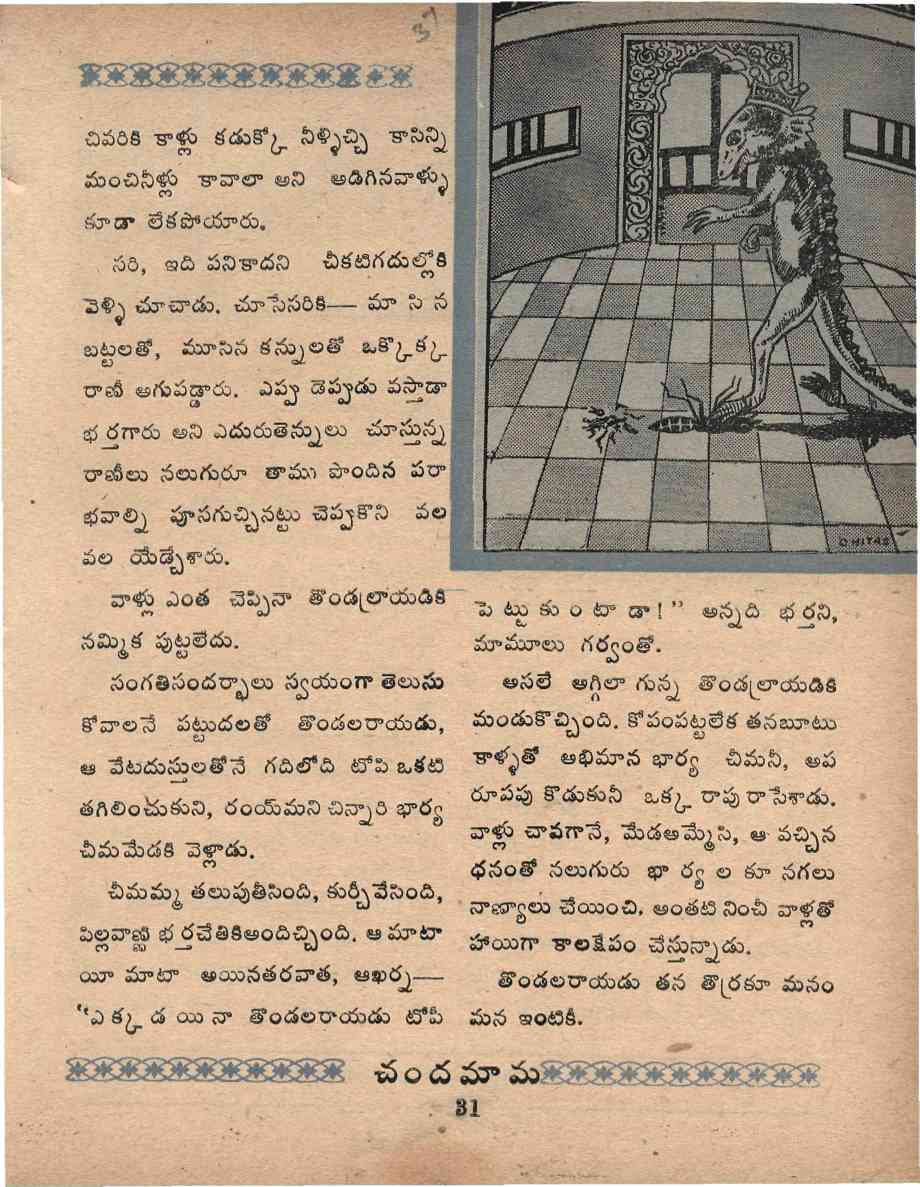 37
చివరికి కాళ్లు కడుక్కో నీళ్ళిచ్చి కాసిన్ని
మంచినీళ్లు కావాలా అని అడిగినవాళ్ళు
కూడా లేకపోయారు.
సరి, ఇది పనికాదని చీకటిగదుల్లోకి
వెళ్ళి చూచాడు. చూసేసరికి— మా సి న
బట్టలతో, మూసిన కన్నులతో ఒక్కొక్క
రాణీ అగుపడ్డారు. ఎప్పు డెప్పుడు వస్తాడా
భర్తగారు అని ఎదురుతెన్నులు చూస్తున్న
రాణీలు నలుగురూ తాము పొందిన పరా
భవాల్ని పూసగుచ్చినట్టు చెప్పుకొని వల
వల యేడ్చేశారు.
వాళ్లు ఎంత చెప్పినా తొండ్రలాయడికి
నమ్మిక పుట్టలేదు.
సంగతిసందర్భాలు స్వయంగా తెలుసు
కోవాలనే పట్టుదలతో తొండలరాయడు,
ఆ వేటదుస్తులతోనే గదిలోది టోపి ఒకటి
తగిలించుకుని, రంయ్‌మని చిన్నారి భార్య
చీమమేడకి వెళ్లాడు.
చీమమ్మ తలుపుతీసింది, కుర్చీ వేసింది,
పిల్లవాణ్ణి భర్తచేతికిఅందిచ్చింది. ఆ మాటా
యీ మాటా అయినతరవాత, ఆఖర్న—
"ఎ క్క డ యి నా తొండలరాయడు టోపీ
పె ట్టు కు ం టా డా!" అన్నది భర్తని,
మామూలు గర్వంతో.
అసలే అగ్గిలా గున్న తొండ్రలాయడికి
మండుకొచ్చింది. కోపంపట్టలేక తనబూటు
కాళ్ళతో అభిమాన భార్య చీమనీ, అప
రూపపు కొడుకునీ ఒక్క రాపు రాసేశాడు.
వాళ్లు చావగానే, మేడఅమ్మేసి, ఆ వచ్చిన
ధనంతో నలుగురు భా ర్య ల కూ నగలు
నాణ్యాలు చేయించి. అంతటి నించీ వాళ్లతో
హాయిగా కాలక్షేపం చేస్తున్నాడు.
తొండలరాయడు తన తొర్రకూ మనం
మన ఇంటికి.
CHITRA
చందమామ
31